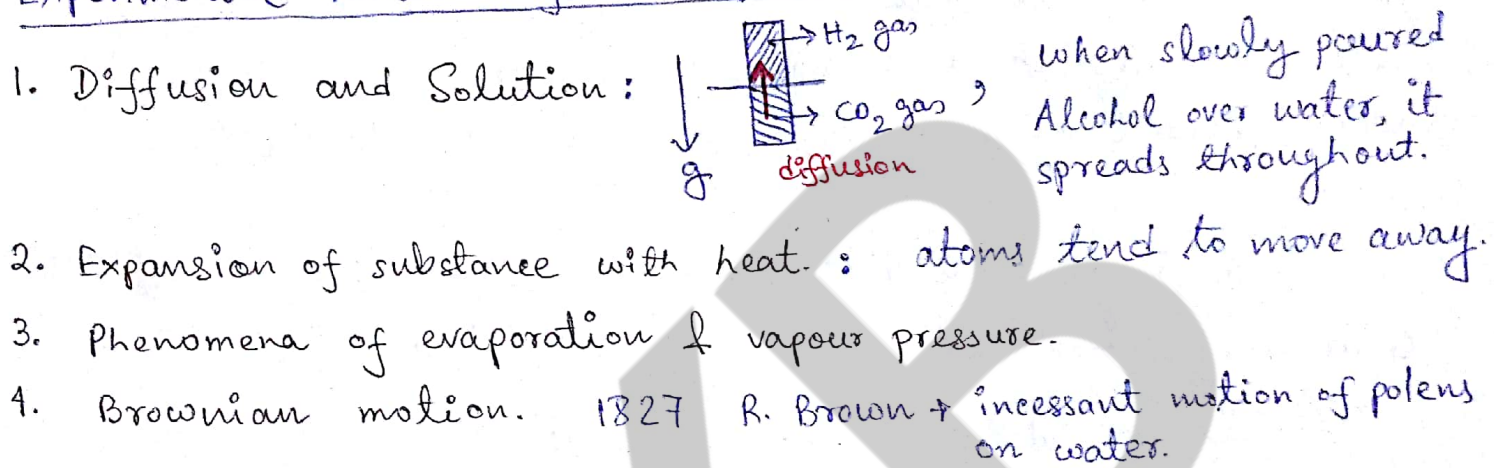 1. Diffusion and Solution :
H2 gas
CO2 gas ,
g
diffusion
when slowly poured
Alcohol over water, it
spreads throughout.
2. Expansion of substance with heat. : atoms tend to move away.
3. Phenomena of evaporation & vapour pressure.
4. Brownian motion. 1827 R. Brown → incessant motion of polens
on water.